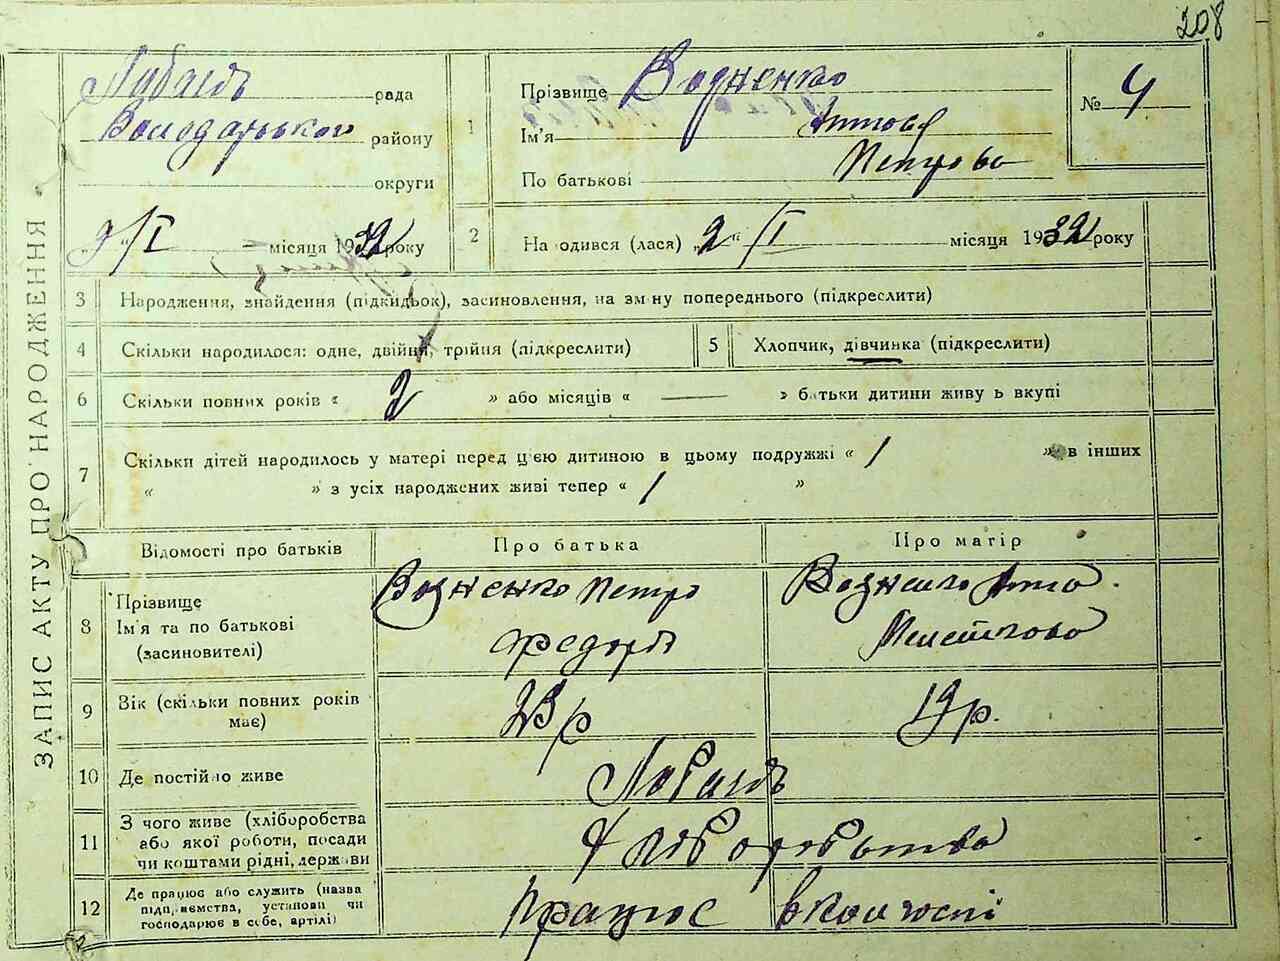 208
рада
Володарського району
округи
9/I місяця 1932 року
1 Прізвище Возненко
Ім'я
По батькові Петрова
№ 4
2 На одився (лася) „2“ /I місяця 1932 року
ЗАПИС АКТУ ПРО НАРОДЖЕННЯ
3 Народження, знайдення (підкидьок), засиновлення, на зміну попереднього (підкреслити)
4 Скільки народилося: одне, двійня, трійня (підкреслити)
5 Хлопчик, дівчинка (підкреслити)
6 Скільки повних років « 2 » або місяців « — » батьки дитини живуть вкупі
7 Скільки дітей народилось у матері перед цією дитиною в цьому подружжі « 1 » в інших
« » з усіх народжених живі тепер « 1 »
Відомості про батьків Про батька Про матір
8 Прізвище
Ім'я та по батькові
(засиновителі)
Возненко Петро
Федорів
Возненко
9 Вік (скільки повних років
має)
23 р
19 р.
10 Де постійно живе
11 З чого живе (хліборобства
або якої роботи, посади
чи коштами рідні, держави
Хліборобства
12 Де працює або служить (назва
підприємства, установи чи
господарює в себе, артілі)
Працює в колгоспі